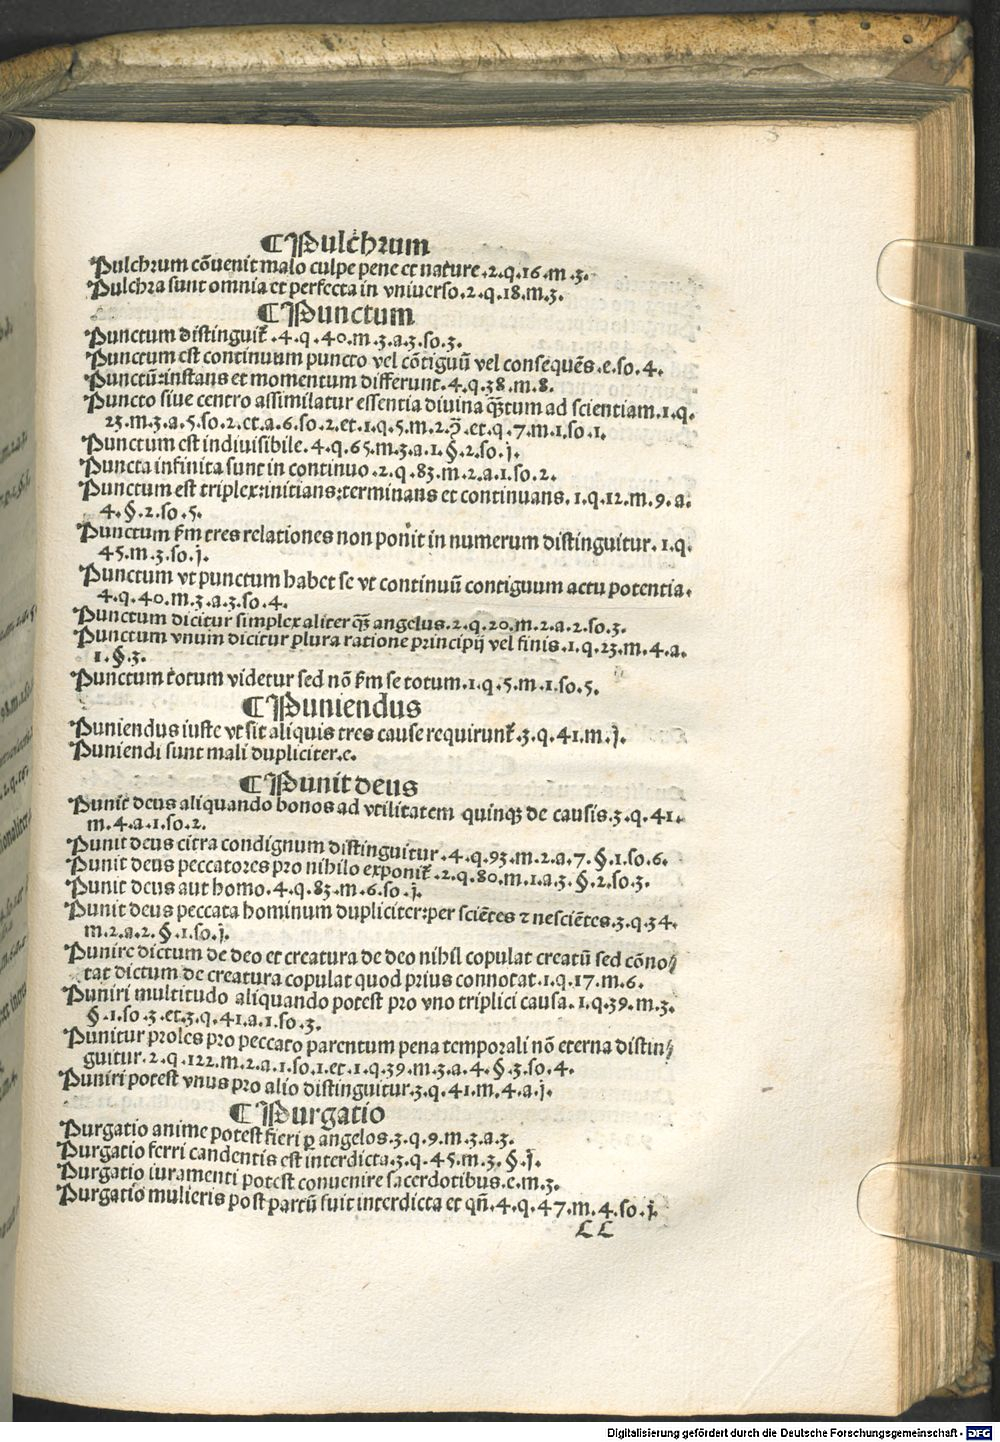 ¶Pulchrum
Pulchrum cōuenit malo culpe pene et nature.2.q.16.m.3.
Pulchra sunt omnia et perfecta in vniuerso.2.q.18.m.3.
¶Punctum
Punctum distinguit̃.4.q.40.m.3.a.3.so.3.
Punctum est continuum puncto vel cōtiguū vel consequēs.e.so.4.
Punctū:instans et momentum differunt.4.q.38.m.8.
Puncto siue centro assimilatur essentia diuina q̃tum ad scientiam.1.q.
23.m.3.a.5.so.2.et.a.6.so.2.et.1.q.5.m.2.ꝯ.et.q.7.m.1.so.1.
Punctum est indiuisibile.4.q.65.m.3.a.1.§.2.so.j.
Puncta infinita sunt in continuo.2.q.83.m.2.a.1.so.2.
Punctum est triplex:initians:terminans et continuans.1.q.12.m.9.a.
4.§.2.so.5.
Punctum fm̄ tres relationes non ponit in numerum distinguitur.1.q.
45.m.3.so.j.
Punctum vt punctum habet se vt continuū contiguum actu potentia.
4.q.40.m.3.a.3.so.4.
Punctum dicitur simplex aliter q̃ angelus.2.q.20.m.2.a.2.so.3.
Punctum vnum dicitur plura ratione principij vel finis.1.q.23.m.4.a.
1.§.3.
Punctum totum videtur sed nō fm̄ se totum.1.q.5.m.1.so.5.
¶Puniendus
Puniendus iuste vt sit aliquis tres cause requirunt̃.3.q.41.m.j.
Puniendi sunt mali dupliciter.e.
¶Punit deus
Punit deus aliquando bonos ad vtilitatem quinqꝫ de causis.3.q.41.
m.4.a.1.so.2.
Punit deus citra condignum distinguitur.4.q.93.m.2.a.7.§.1.so.6.
Punit deus peccatores pro nihilo exponit̃.2.q.80.m.1.a.3.§.2.so.3.
Punit deus aut homo.4.q.83.m.6.so.j.
Punit deus peccata hominum dupliciter:per sciētes ⁊ nesciētes.3.q.34.
m.2.a.2.§.1.so.j.
Punire dictum de deo et creatura de deo nihil copulat creatū sed cōno/
tat dictum de creatura copulat quod prius connotat.1.q.17.m.6.
Puniri multitudo aliquando potest pro vno triplici causa.1.q.39.m.3.
§.1.so.3.et.3.q.41.a.1.so.3.
Punitur proles pro peccato parentum pena temporali nō eterna distin/
guitur.2.q.122.m.2.a.1.so.1.et.1.q.39.m.3.a.4.§.3.so.4.
Puniri potest vnus pro alio distinguitur.3.q.41.m.4.a.j.
¶Purgatio
Purgatio anime potest fieri ꝑ angelos.3.q.9.m.3.a.3.
Purgatio ferri candentis est interdicta.3.q.45.m.3.§.j.
Purgatio iuramenti potest conuenire sacerdotibus.e.m.3.
Purgatio mulieris post partū fuit interdicta et qn̄.4.q.47.m.4.so.j.
LL
Digitalisierung gefördert durch die Deutsche Forschungsgemeinschaft - DFG